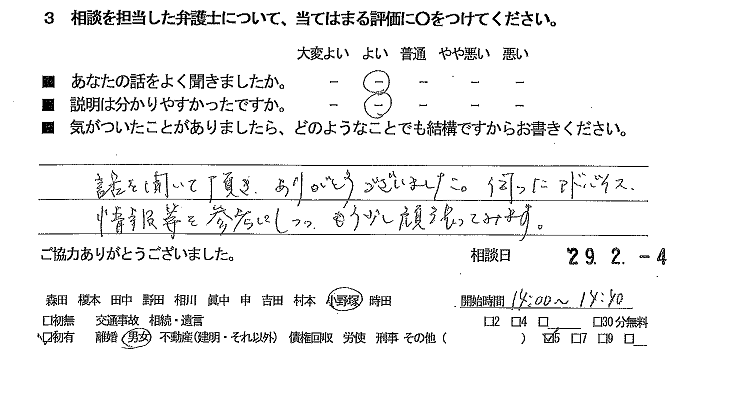 3 相談を担当した弁護士について、当てはまる評価に〇をつけてください。
大変よい よい 普通 やや悪い 悪い
■ あなたの話をよく聞きましたか。 － － － － －
■ 説明は分かりやすかったですか。 － － － － －
■ 気がついたことがありましたら、どのようなことでも結構ですからお書きください。
話を聞いて頂き、ありがとうございました。伺ったアドバイス、
情報等を参考にしつつ、もう少し頑張ってみます。
ご協力ありがとうございました。 相談日 '29. 2. -4
森田 榎本 田中 野田 相川 眞中 申 吉田 村本 小野塚 時田 開始時間 14:00～14:40
□初無 交通事故 相続・遺言 □2 □4 □ □30分無料
☑初有 離婚 男女 不動産(建明・それ以外) 債権回収 労使 刑事 その他 ( ) ☑5 □7 □9 □